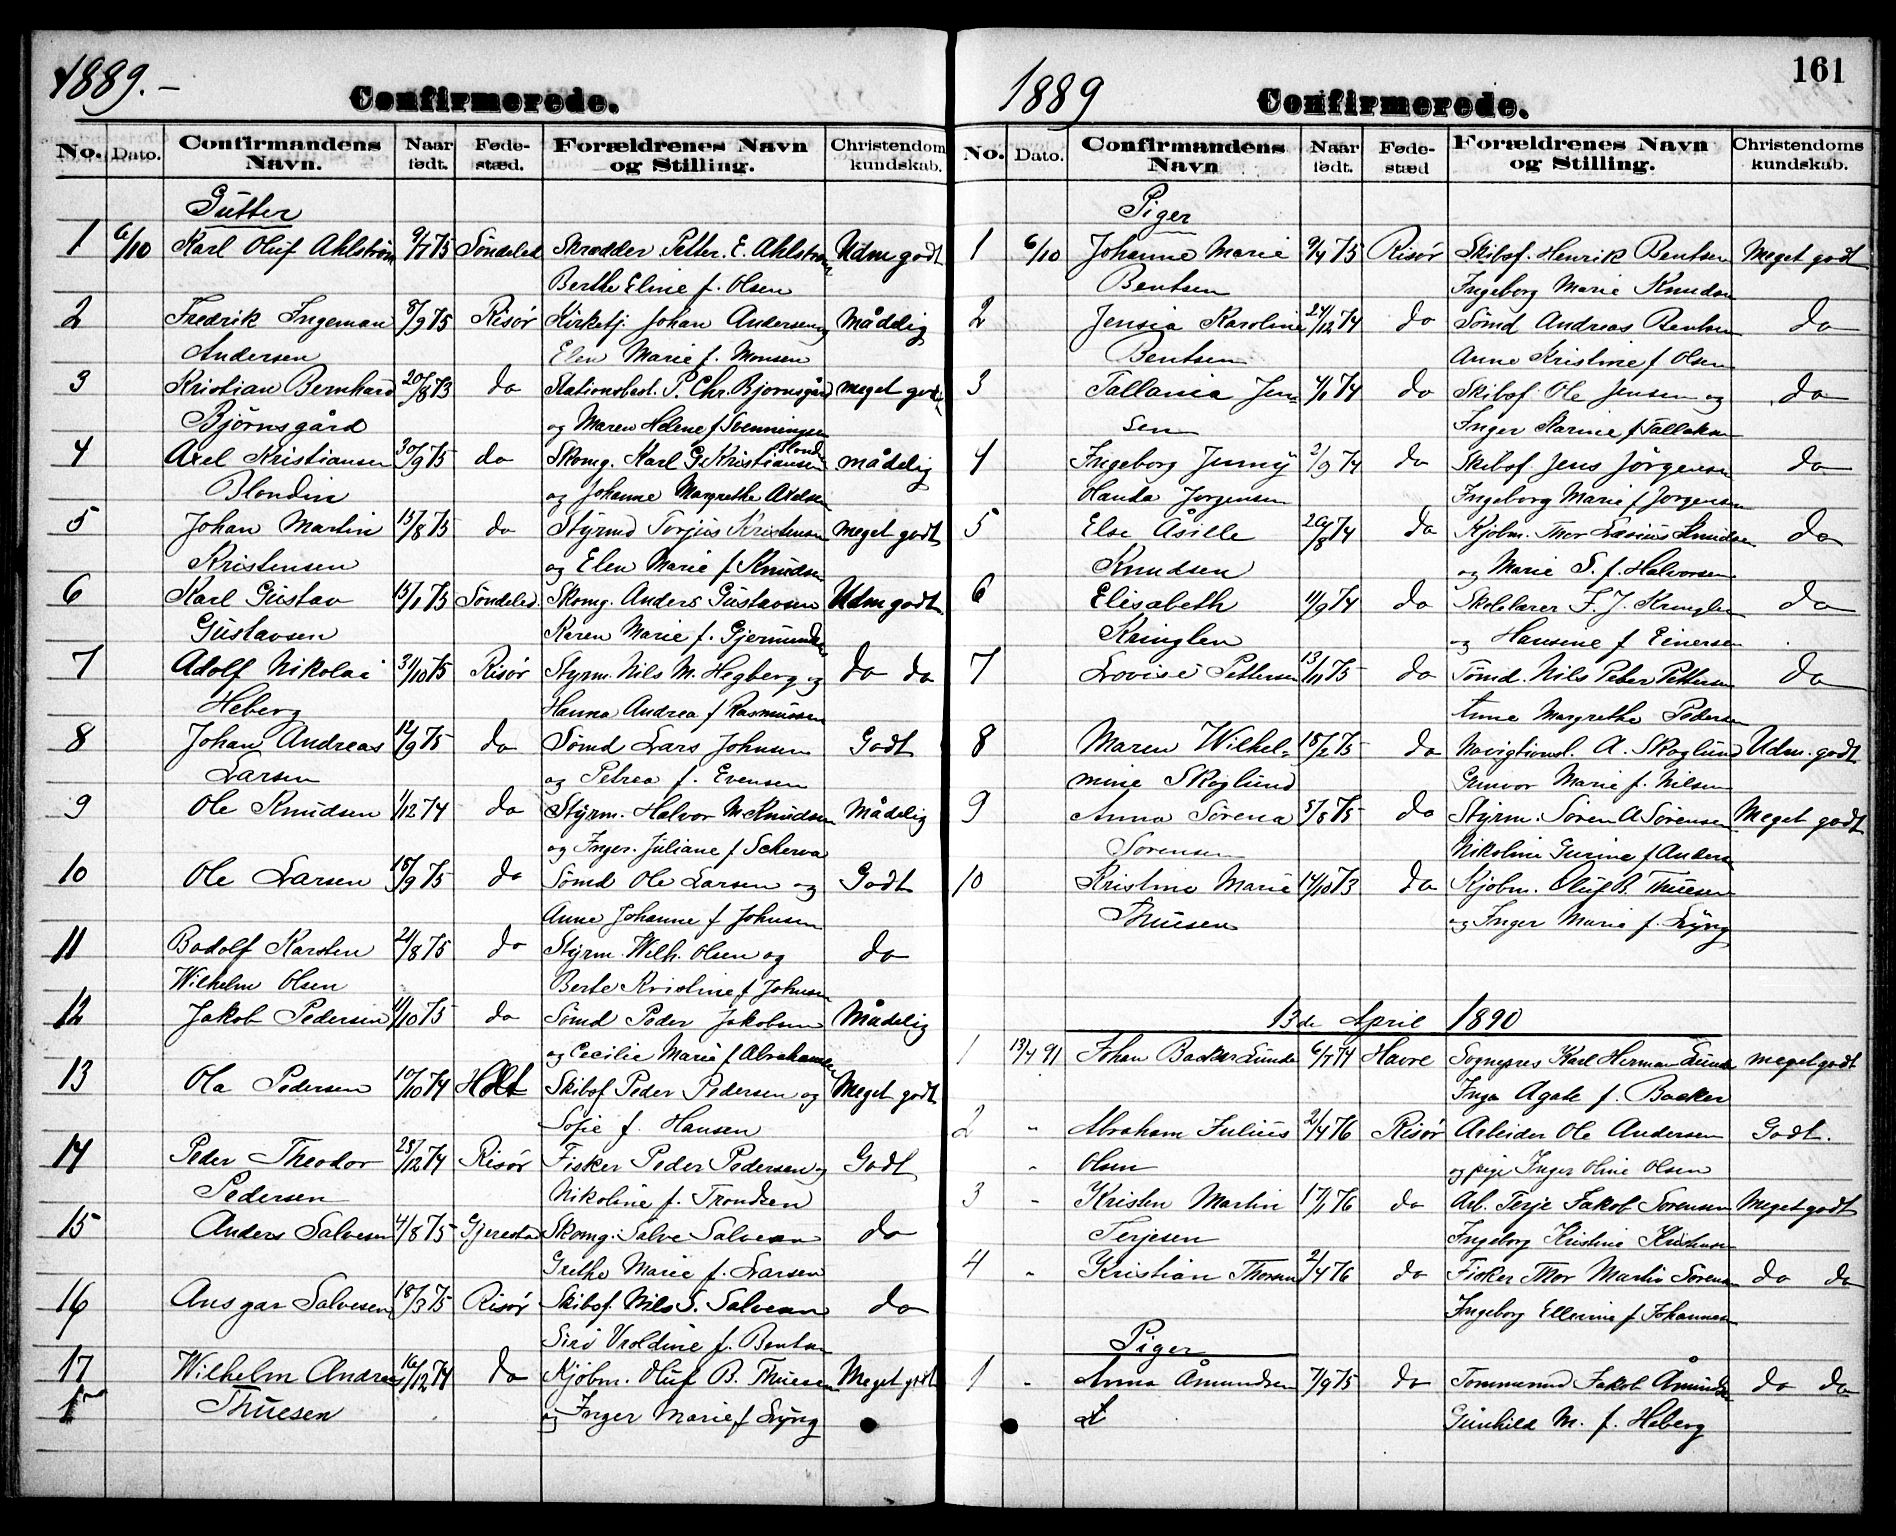 1889.-
Confirmerede.
No. Dato. Confirmandens Navn. Naar født. Føde-stæd. Forældrenes Navn og Stilling. Christendoms kundskab.
Gutter
1 6/10 Karl Oluf Ahlström 9/7 75 Söndeled Skrædder Petter. E. Ahlström Udm godt
Berthe Eline f. Olsen
2 Fredrik Ingeman 8/9 75 Risör Kirketj. Johan Andersen og Mådelig
Andersen Elen Marie f. Monsen
3 Kristian Bernhard 20/8 73 do Stationsbest. P. Chr. Björnsgård meget godt
Björnsgård og Maren Helene f Svenningsen
4 Axel Kristiansen 30/9 75 do Skomg. Karl G. Kristiansen Blondin mådelig
Blondin og Johanne Margrethe Axelsen
5 Johan Martin 15/8 75 do Styrmd Torjus Kristensen meget godt
Kristensen og Elen Marie f Knudsen
6 Karl Gustav 15/1 75 Söndeled Skomg. Anders Gustavsen Udm godt
Gustavsen Karen Marie f. Gjermundsen
7 Adolf Nikolai 31/10 75 Risör Styrm. Nils M. Hegberg og do do
Heberg Hanna Andrea f Rasmussen
8 Johan Andreas 12/9 75 do Sömd Lars Johnsen Godt
Larsen og Petrea f. Evensen
9 Ole Knudsen 1/12 74 do Styrm. Halvor M Knudsen Mådelig
og Inger. Juliane f Scherva
10 Ole Larsen 15/9 75 do Sömd Ole Larsen og Godt
Anne Johanne f Johnsen
11 Bodolf Karsten 21/8 75 do Styrm. Wilh. Olsen og do
Wilhelm Olsen Berte Kristine f Johnsen
12 Jakob Pedersen 11/10 75 do Sömd Peder Jakobsen Mådelig
og Cecilie Marie f Abrahamsen
13 Ola Pedersen 10/10 74 Holt Skibsf Peder Pedersen og Meget godt
Sofie f. Hansen
14 Peder Theodor 25/12 74 Risör Fisker Peder Pedersen og Godt
Pedersen Nikoline f. Trondsen
15 Anders Salvesen 4/8 75 Gjerestad Skomg. Salve Salvesen do
Grethe Marie f. Larsen
16 Ansgar Salvesen 18/3 75 Risör Skibsf. Nils S. Salvesen do
Siri Uroldine f. Bentsen
17 Wilhelm Andreas 16/12 74 do Kjöbm. Oluf B. Thuesen Meget godt
Thuesen og Inger Marie f Lyng
161
1889
Confirmerede.
No. Dato. Confirmandens Navn Naar født. Føde-stæd Forældrenes Navn og Stilling. Christendoms kundskab.
Piger
1 6/10 Johanne Marie 9/4 75 Risör Skibsf. Henrik Bentsen Meget godt
Bentsen Ingeborg Marie Knudsen
2 Jensia Karoline 24/12 74 do Sömd Andreas Bentsen do
Bentsen Anne Kristine f Olsen
3 Tallania Jen 4/1 74 do Skibsf. Ole Jensen og do
sen Inger Karine f Tallaksen
4 Ingeborg Jenny 2/9 74 do Skibsf. Jens Jörgensen do
Hauda Jörgensen Ingeborg Marie f Jorgensen
5 Else Åsille 20/8 74 do Kjöbm. Thor Knudsen do
Knudsen og Marie S. f. Halvorsen
6 Elisabeth 11/9 74 do Skolelærer F. J. Kringlen do
Kringlen og Hansine f Einersen
7 Lovise Pettersen 13/11 75 do Tömd. Nils Peter Pettersen do
Anne Margrethe Pedersen
8 Maren Wilhel- 18/2 75 do Navigtionsl. A. Skoglund Udm. godt
mine Skoglund Gunvor Marie f. Nilsen
9 Anna Sörena 5/8 75 do Styrm. Sören A Sörensen Meget godt
Sorensen Nikoline Gurine f Anders
10 Kristine Marie 14/10 73 do Kjöbm. Oluf B. Thuesen
Thuesen og Inger Marie f. Lyng
13de April 1890
1 13/4 91 Johan Backer Lunde 6/7 74 Havre Sognepres Karl Herman Lunde meget godt
Inga Agate f. Backer
2 " Abraham Julius 2/4 76 Risör Arbeider Ole Andersen Godt.
" Olsen og pige Inger Oline Olsen
3 " Kristen Martin 17/1 76 do Arb. Terje Jakob Sorensen Meget godt
Terjesen Ingeborg Kristine Kristensen
4 " Kristian Thorsen 2/4 76 do Fisker Thor Martin Sorensen do do
Ingeborg Ellevine f Johannesen
Piger
1 " Anna Åmundsen 7/9 75 do Tommermd Jakob Åmundsen do do
Gunhild M. f. Heberg